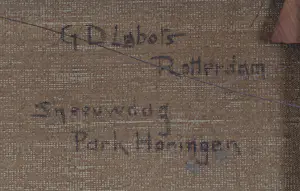 G D Labots
Rotterdam
Sneeuwdag
Park Honingen